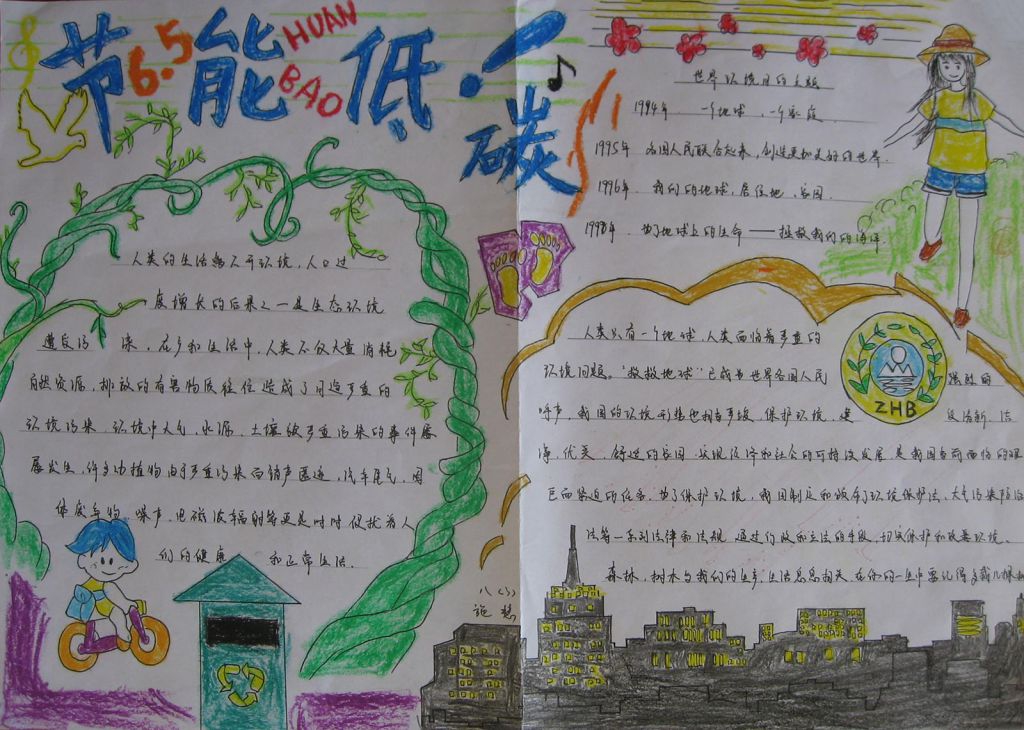 节能低碳
6.5
HUAN
BAO
人类的生活离不开环境，人口过
度增长的后果之一是生态环境
遭受污染，在乡和生活中，人类不仅大量消耗
自然资源，排放的有害物质往往造成了日趋严重的
环境污染，环境中大气，水源，土壤被严重污染的事件屡
屡发生，许多动植物由于严重污染而销声匿迹，汽车尾气，固
体废弃物，噪声，电磁波辐射等更是时时侵扰着人
们的健康和正常生活.
八(3)
施慧
世界环境日的主题
1994年 一个地球，一个家庭
1995年 各国人民联合起来，创造更加美好的世界.
1996年 我们的地球，居住地，家园.
1998年 为了地球上的生命——拯救我们的海洋.
人类只有一个地球，人类面临着严重的
环境问题。"救救地球"已成为世界各国人民强烈的
呼声，我国的环境形势也相当严峻，保护环境，建设清新、洁
净，优美，舒适的家园，实现经济和社会的可持续发展，是我国当前面临的艰
巨而紧迫的任务，为了保护环境，我国制定和颁布了环境保护法，大气污染防治
法等一系列法律和法规，通过行政和立法的手段，切实保护和改善环境.
森林，树木与我们的生多，生活息息相关，在你的一生中要记得多栽几棵树
ZHB